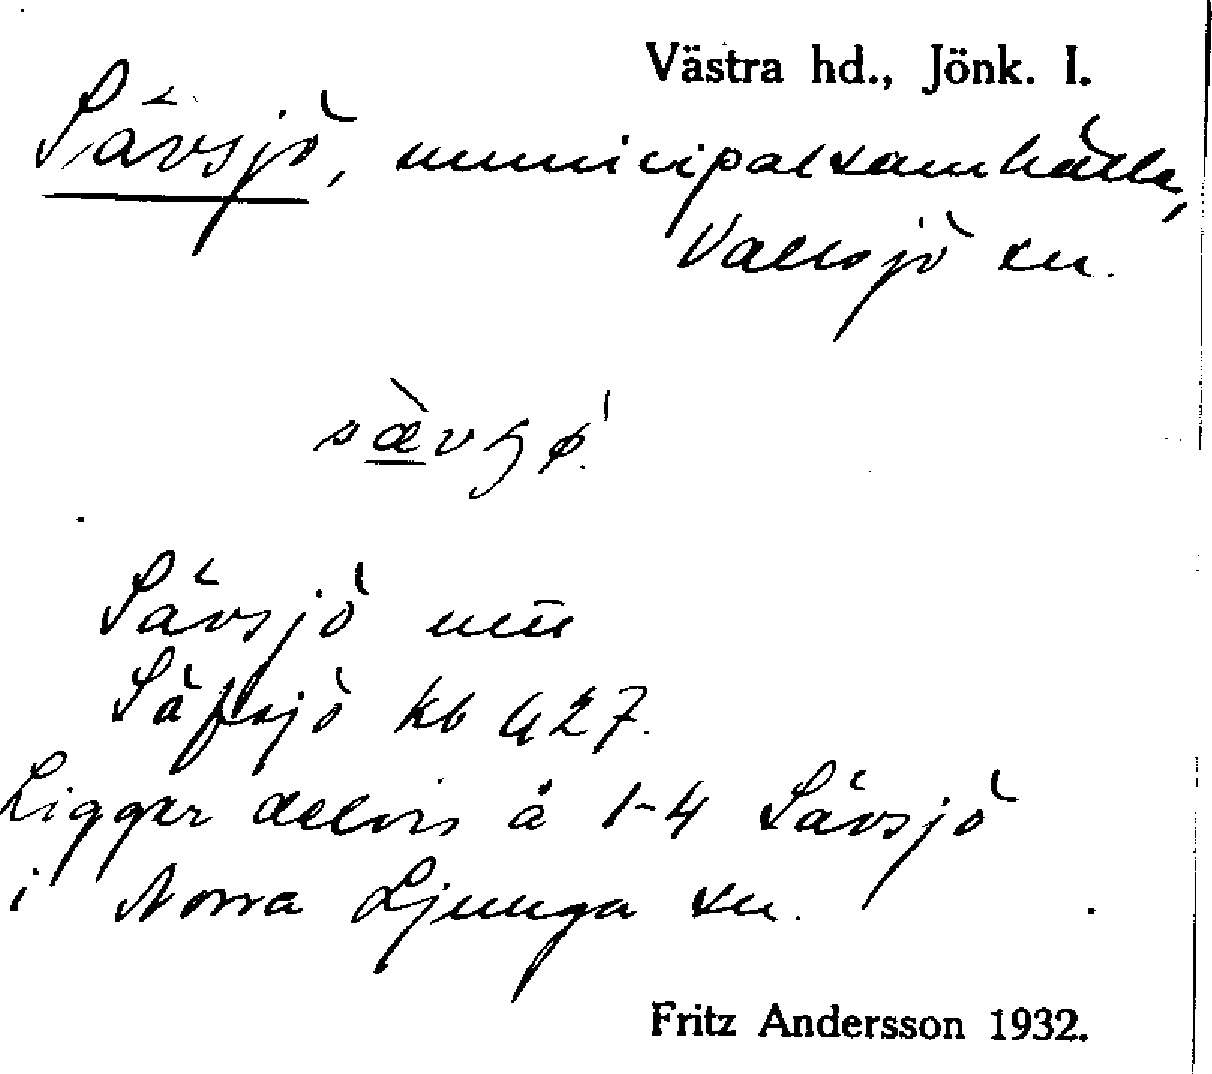 Västra hd., Jönk. l.
Sävsjö, municipalsamhälle,
Vallsjö sn.
Sävsjö
Säfsjö kb 427.
Ligger delvis å 1-4 Sävsjö
i Norra Ljunga sn.
Fritz Andersson 1932.